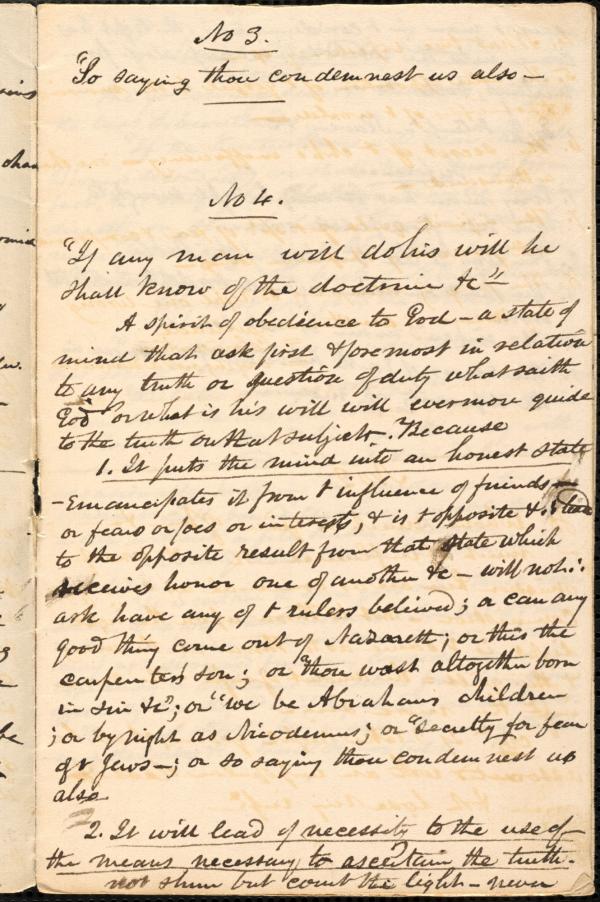 No 3.
"So saying thou condemnest us also —
No 4.
"If any man will do his will he
shall know of the doctrine &c"
A spirit of obedience to God – a state of
mind that ask first & foremost in relation
to any truth or question of duty what saith
God or what is his will will evermore guide
to the truth on that subject. Because
1. It puts the mind into an honest state
– Emancipates it from t influence of friends
or fears or foes or interests, & is t opposite &
to the opposite result from that state which
receives honor one of another &c – will not
ask have any of t rulers believed; or can any
good thing come out of Nazareth; or this the
carpenters son; or "thou wast altogether born
in sin &c"; or "we be Abrahams children
; or by night as Nicodemus; or "secretly for fear
of t Jews –; or so saying thou condemnest us
also
2. It will lead of necessity to the use of
the means necessary to ascertain the truth.
not shun but court the light – never